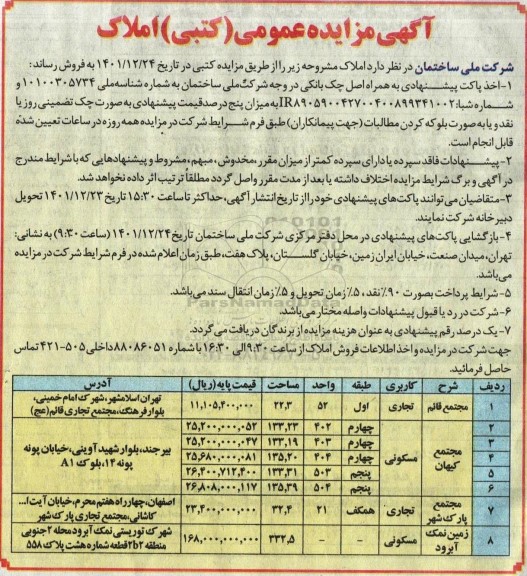 آگهی مزایده عمومی (کتبی) املاک
شرکت ملی ساختمان در نظر دارد املاک مشروحه زیر را از طریق مزایده کتبی در تاریخ ۱۴۰۱/۱۲/۲۴ به فروش رساند:
۱-اخذ پاکت پیشنهادی به همراه اصل چک بانکی در وجه شرکت ملی ساختمان به شماره شناسه ملی ۱۰۱۰۰۳۰۵۷۳۴ و
شماره شبا: IR۸۹۰۵۹۰۰۴۲۷۰۰۴۰۰۸۹۹۳۴۱۰۰۲ به میزان پنج درصد قیمت پیشنهادی به صورت چک تضمینی روز یا
نقد و یا به صورت بلوکه کردن مطالبات (جهت پیمانکاران) طبق فرم شرایط شرکت در مزایده همه روزه در ساعات تعیین شده
قابل انجام است.
۲-پیشنهادات فاقد سپرده یا دارای سپرده کمتر از میزان مقرر، مخدوش، مبهم، مشروط و پیشنهادهایی که با شرایط مندرج
در آگهی و برگ شرایط مزایده اختلاف داشته یا بعد از مدت مقرر واصل گردد مطلقا ترتیب اثر داده نخواهد شد.
۳-متقاضیان می‌توانند پاکت‌های پیشنهادی خود را از تاریخ انتشار آگهی، حداکثر تا ساعت ۱۵:۳۰ تاریخ ۱۴۰۱/۱۲/۲۳ تحویل
دبیرخانه شرکت نمایند.
۴-بازگشایی پاکت‌های پیشنهادی در محل دفتر مرکزی شرکت ملی ساختمان تاریخ ۱۴۰۱/۱۲/۲۴ (ساعت ۹:۳۰) به نشانی:
تهران، میدان صنعت، خیابان ایران زمین، خیابان گلستان، پلاک هفت، طبق زمان اعلام شده در فرم شرایط شرکت در مزایده
می‌باشد.
۵-شرایط پرداخت بصورت ۹۰٪ نقد، ۵٪ زمان تحویل و ۵٪ زمان انتقال سند می‌باشد.
۶-شرکت در رد یا قبول پیشنهادات واصله مختار می‌باشد.
۷-یک درصد رقم پیشنهادی به عنوان هزینه مزایده از برندگان دریافت می‌گردد.
جهت شرکت در مزایده و اخذ اطلاعات فروش املاک از ساعت ۹:۳۰ الی ۱۶:۳۰ با شماره ۸۸۰۸۶۰۵۱ داخلی ۵۰۵-۴۲۱ تماس
حاصل فرمائید.
ردیف شرح کاربری طبقه واحد مساحت قیمت پایه (ریال) آدرس
۱ مجتمع قائم تجاری اول ۵۲ ۲۲,۳ ۱۱,۱۰۵,۴۰۰,۰۰۰ تهران اسلامشهر، شهرک امام خمینی، بلوار فرهنگ، مجتمع تجاری قائم (عج)
۲ مجتمع کیهان مسکونی چهارم ۴۰۲ ۱۳۳,۲۳ ۲۵,۲۰۰,۰۰۰,۰۵۲ بیرجند، بلوار شهید آوینی، خیابان پونه پونه ۱۳، بلوک A۱
۳ چهارم ۴۰۳ ۱۳۳,۱۹ ۲۵,۲۰۰,۰۰۰,۰۴۷
۴ چهارم ۴۰۴ ۱۳۵,۲۰ ۲۵,۶۸۰,۰۰۰,۰۸۱
۵ پنجم ۵۰۳ ۱۳۳,۳۱ ۲۶,۴۰۰,۷۱۲,۴۰۰
۶ پنجم ۵۰۴ ۱۳۵,۳۹ ۲۶,۸۰۸,۰۰۰,۱۱۷
۷ مجتمع پارک شهر تجاری همکف ۲۱ ۳۲,۴ ۲۳,۴۰۰,۰۰۰,۰۰۰ اصفهان، چهارراه هفتم محرم، خیابان آیت ا... کاشانی، مجتمع تجاری پارک شهر
۸ زمین نمک آبرود مسکونی - - ۳۳۲,۵ ۱۶۸,۰۰۰,۰۰۰,۰۰۰ شهرک توریستی نمک آبرود محله ۲ جنوبی منطقه ۲b۲ قطعه شماره هشت پلاک ۵۵۸
ParsNamadData